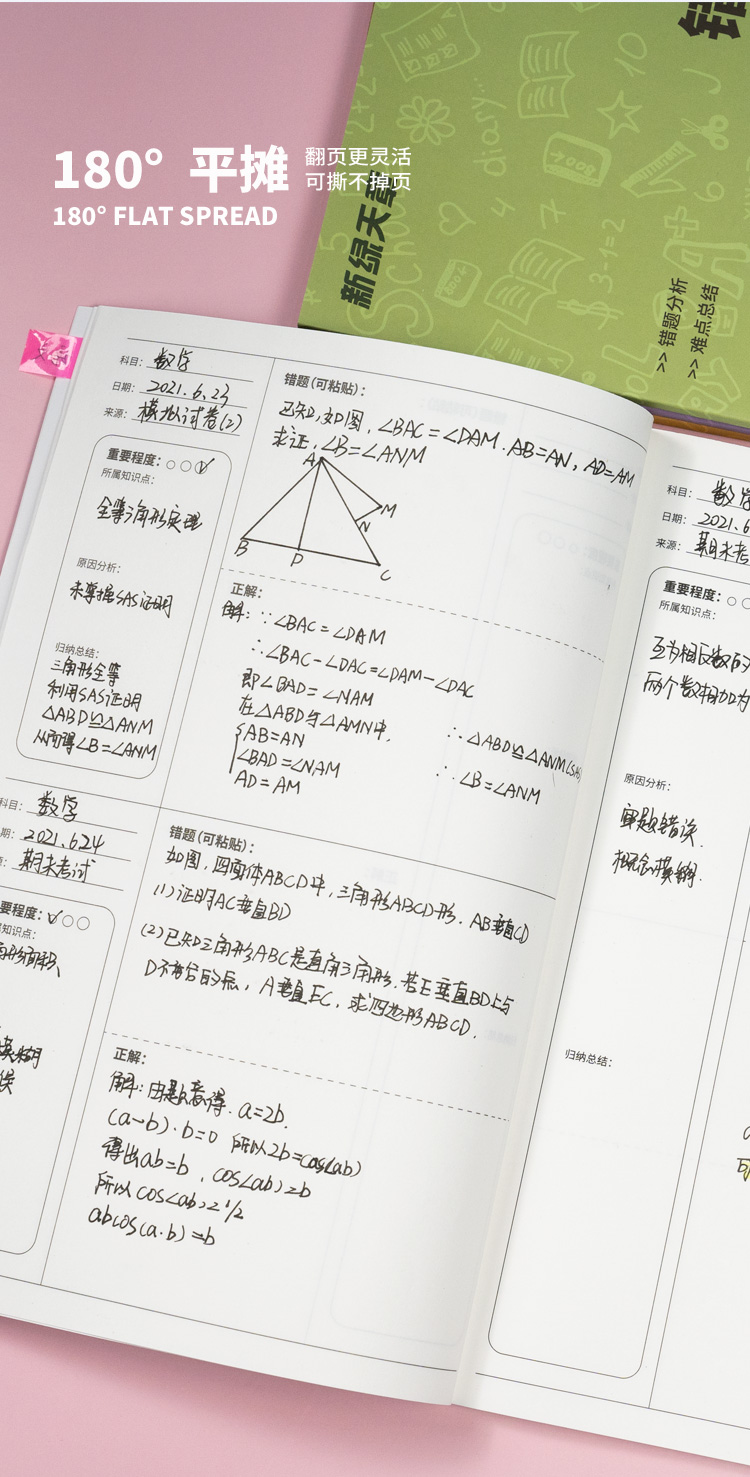 180° 平摊
翻页更灵活
可撕不掉页
180° FLAT SPREAD
错
diary...
新绿天章
>> 错题分析
>> 难点总结
科目: 数学
日期: 2021.6.23
来源: 模拟试卷(2)
重要程度: ○○○√
所属知识点:
全等三角形定理
原因分析:
未掌握SAS证明
归纳总结:
三角形全等
利用SAS证明
△ABD≌△ANM
从而得∠B=∠ANM
错题(可粘贴):
已知,如图,∠BAC=∠DAM.AB=AN,AD=AM
求证,∠B=∠ANM
A
M
N
B
P
C
正解:
解:∵∠BAC=∠DAM
∴∠BAC-∠DAC=∠DAM-∠DAC
即∠BAD=∠NAM
在△ABD与△AMN中,
AB=AN
∠BAD=∠NAM
AD=AM
∴△ABD≌△ANM(SAS)
∴∠B=∠ANM
科目: 数学
期: 2021.6.24
: 期末考试
要程度: √○○
知识点:
角形面积
模糊
误
错题(可粘贴):
如图,四面体ABCD中,三角形ABCD形.AB垂直CD
(1)证明AC垂直BD
(2)已知三角形ABC是直角三角形.若E垂直BD上与
D不重合的点,A垂直EC,求四边形ABCD.
正解:
解:由题意得.a=2b.
(a-b)·b=0 所以2b=cos(ab)
得出ab=b,cos<ab>=b
所以cos<ab>=1/2
abcos(a·b)=b
科目: 数学
日期: 2021.6
来源: 期末考
重要程度: ○○
所属知识点:
互为相反数的
两个数相加为
原因分析:
审题错误.
概念模糊.
归纳总结: